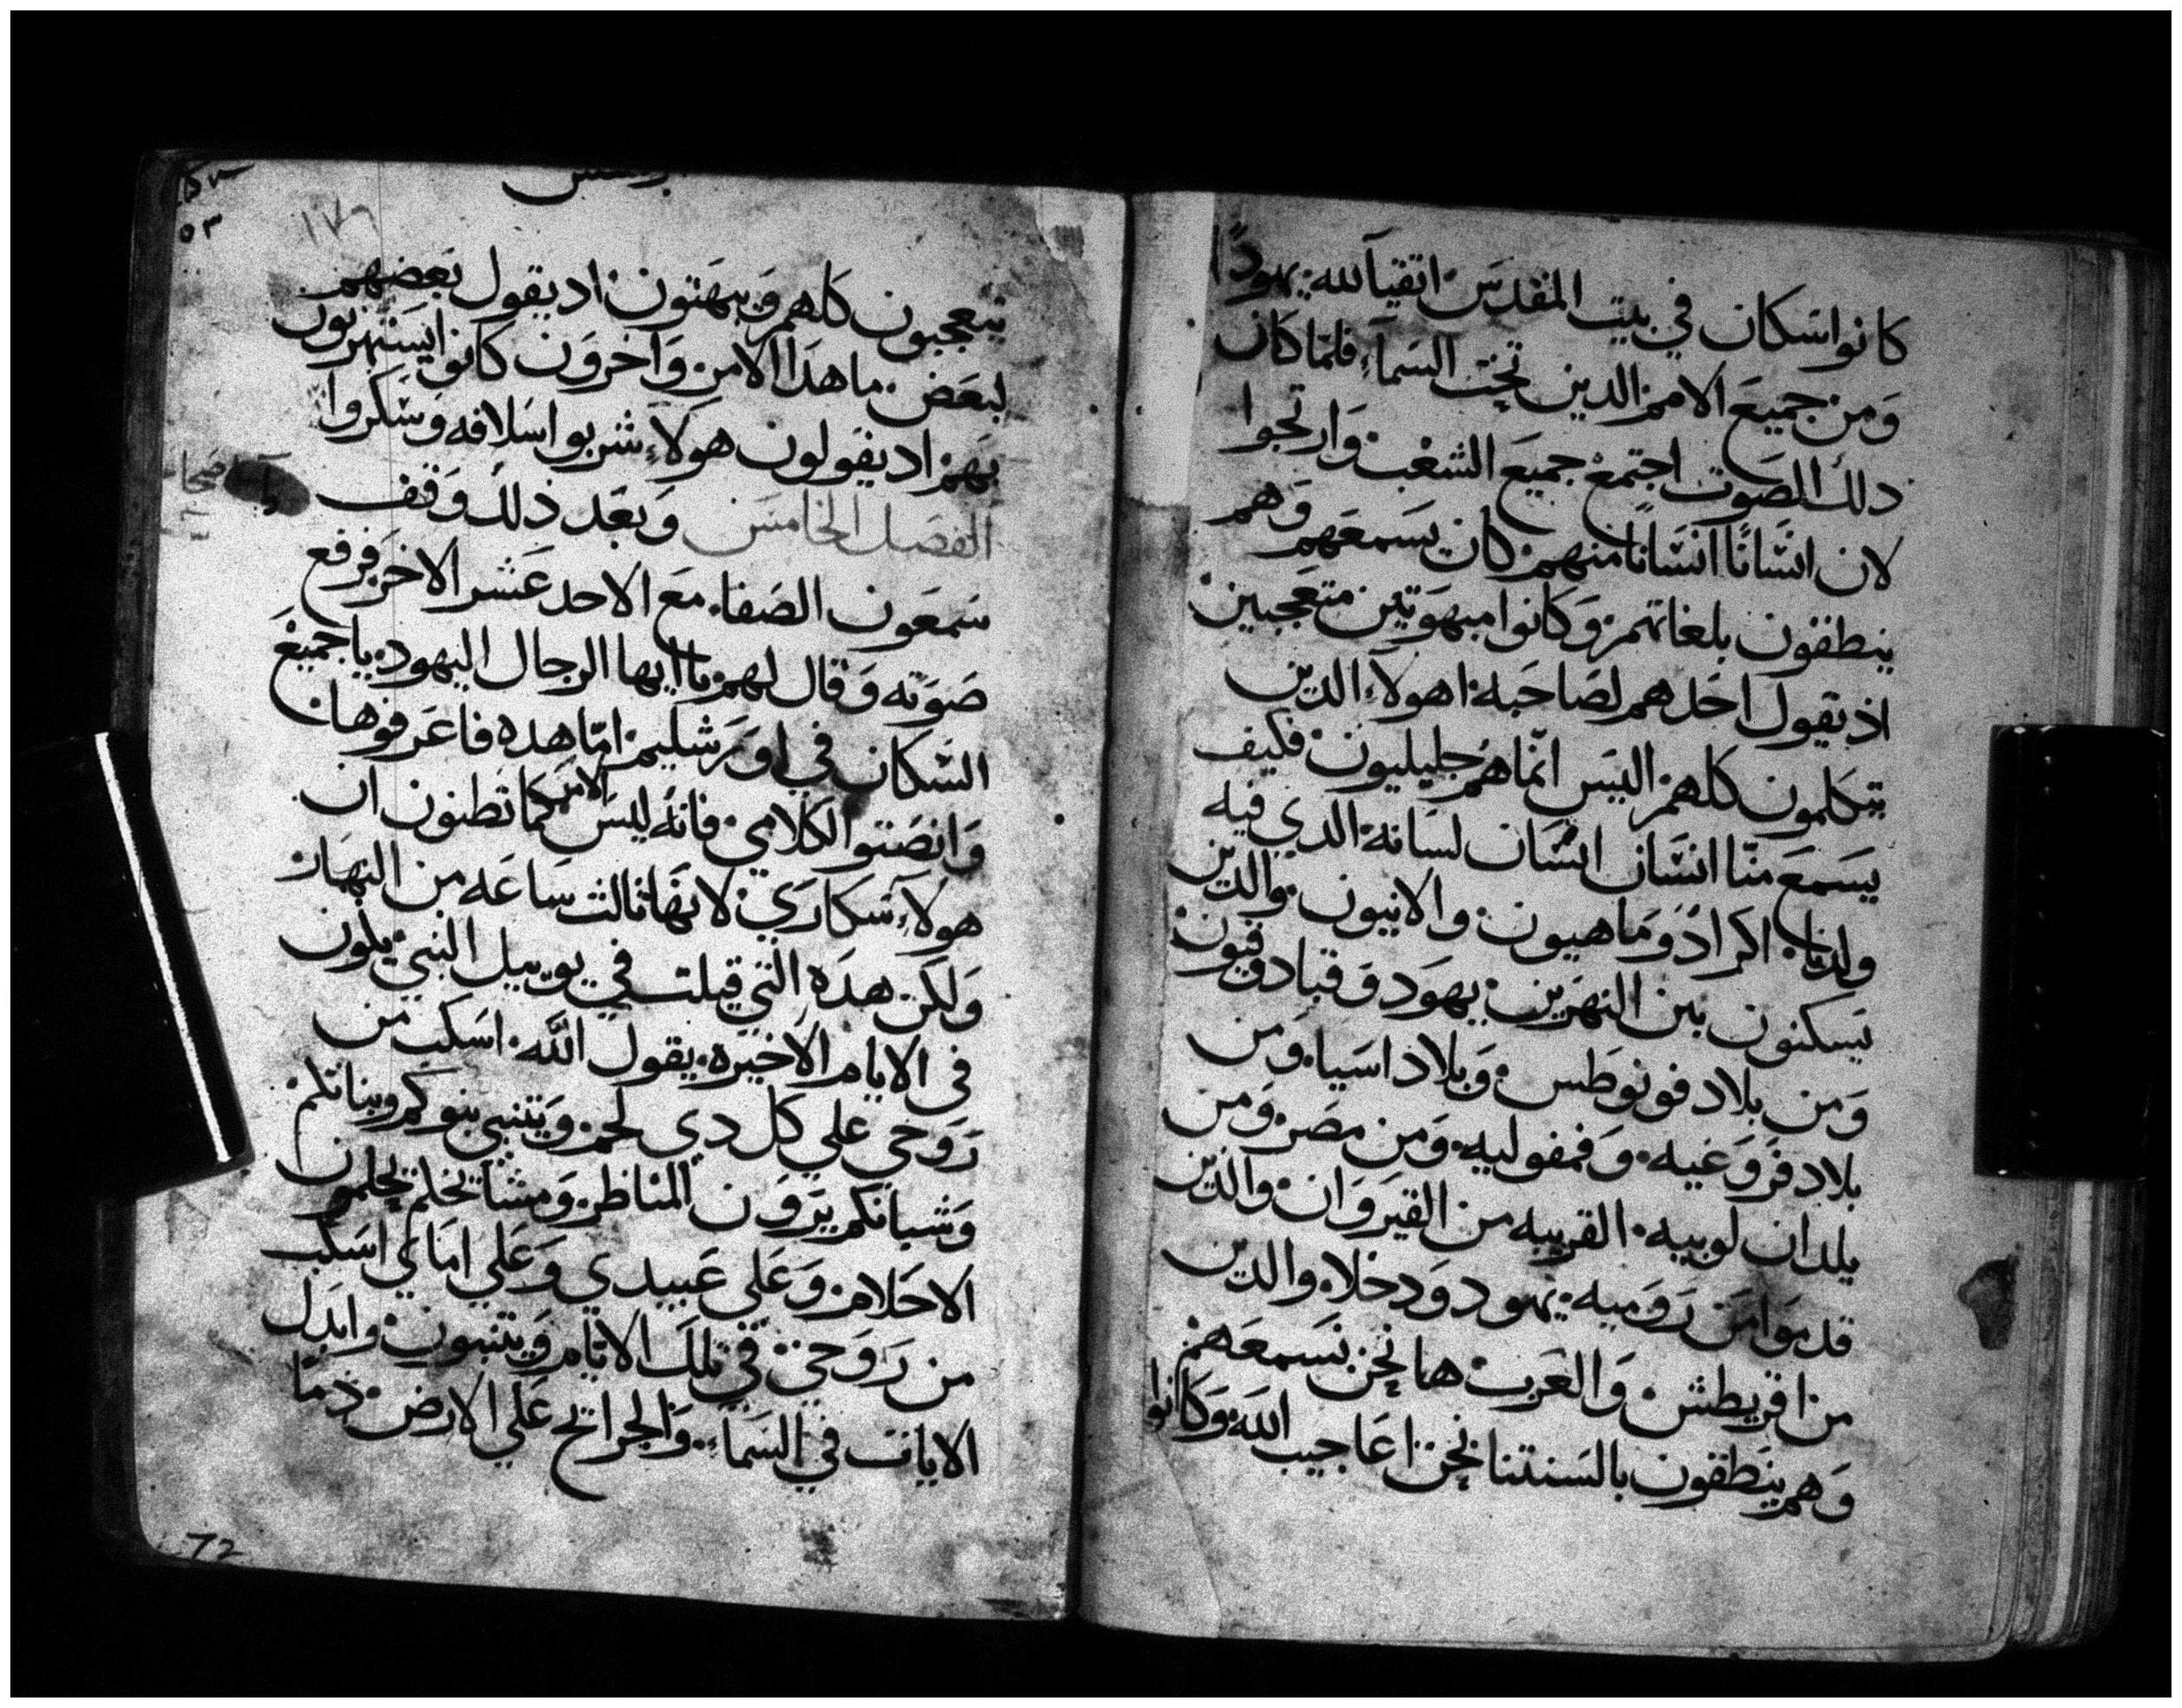 كانوا سكان في بيت المقدس اتقيآ لله يهودًا
ومن جميع الامم الدين تحت السمآء فلما كان
دلك الصوت اجتمع جميع الشعب وارتجوا
لان انسانًا انسانًا منهم كان يسمعهم وهم
ينطقون بلغاتهم وكانوا مبهوتين متعجبين
اذ يقول احدهم لصاحبه اهولآء الدين
يتكلمون كلهم اليس انما هم جليليون فكيف
يسمع منا انسان انسان لسانه الدي فيه
ولدنا اكراد وماهيون والانيون والدين
يسكنون بين النهرين يهود وقبادوقيون
ومن بلاد فونوطس وبلاد اسيا ومن
بلاد فروغيه وفمفوليه ومن مصر ومن
بلدان لوبيه القريبه من القيروان والدين
قدموا من روميه يهود ودخلا والدين
من اقريطش والعرب ها نحن نسمعهم
وهم ينطقون بالسنتنا نحن اعاجيب الله وكانوا
٥٣
١٧٦
يتعجبون كلهم ويبهتون اد يقول بعضهم
لبعض ما هدا الامر واخرون كانوا يستهزيون
بهم اد يقولون هولآء شربوا سلافه وسكروا
الفصل الخامس وبعد ذلك وقف
سمعون الصفا مع الاحد عشر الاخر فرفع
صوته وقال لهم يا ايها الرجال اليهود يا جميع
السكان في اورشليم اما هده فاعرفوها
وانصتوا لكلامي فانه ليس الامر كما تظنون ان
هولآء سكاري لانها ثالث ساعه من النهار
ولكن هده التي قيلت في يوييل النبي يكون
في الايام الاخيره يقول الله اسكب من
روحي علي كل دي لحم ويتنبي بنوكم وبناتكم
وشبانكم يرون المناظر ومشائخكم يحلمون
الاحلام وعلي عبيدي وعلي امائي اسكب
من روحي في تلك الايام ويتنبون وابدل
الايات في السمآء والجرائح علي الارض دمًا
72